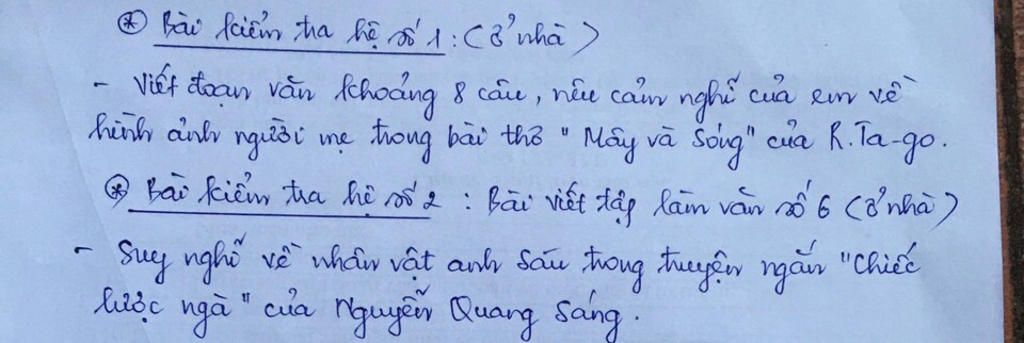 ⊛ Bài kiểm tra hệ số 1 : (ở nhà)
- Viết đoạn văn khoảng 8 câu, nêu cảm nghĩ của em về
hình ảnh người mẹ trong bài thơ "Mây và Sóng" của R.Ta-go.
⊛ Bài kiểm tra hệ số 2 : Bài viết tập làm văn số 6 (ở nhà)
- Suy nghĩ về nhân vật anh Sáu trong truyện ngắn "Chiếc
lược ngà" của Nguyễn Quang Sáng.